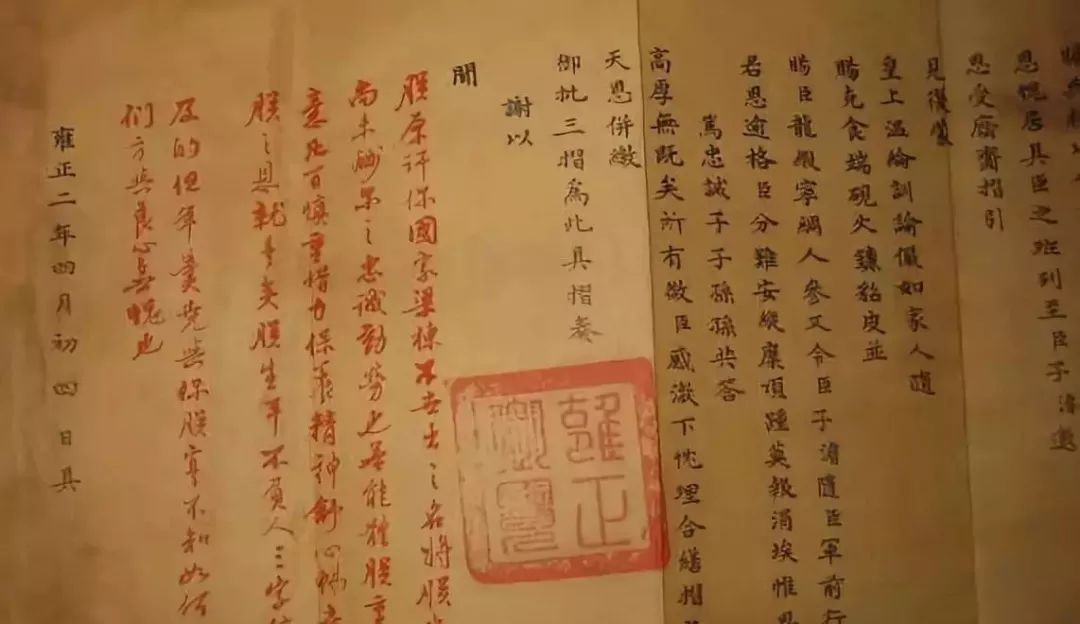 恩愧居具臣之班列至臣子濬
恩受齎摺引
見復蒙
皇上温綸訓諭儼如家人隨
賜克食端硯火鐮貂皮並
賜臣龍緞寧綢人參又令臣子濬隨臣軍前行
君恩逾格臣分難安縱糜頂踵莫報涓埃惟思
篤忠誠子子孫孫共荅
高厚無既矣所有微臣感激下忱理合繕摺
天恩併繳
御批三摺爲此具摺奏
謝以
聞
朕原許你國家梁棟不世出之名將朕
尚未酬尔之忠誠勤勞也若能體朕
意凡百慎重惜力保養精神舒心暢
朕之恩就是矣朕生平不負人三字
及的但年羹堯與你朕實不知如何
们方與良心無愧也
雍正二年四月初四日具
雍正